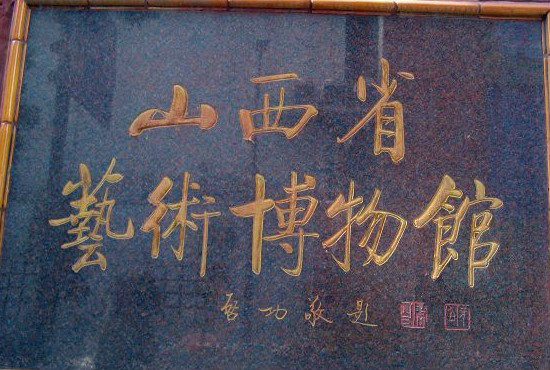 山西省
藝術博物館
啓功敬題